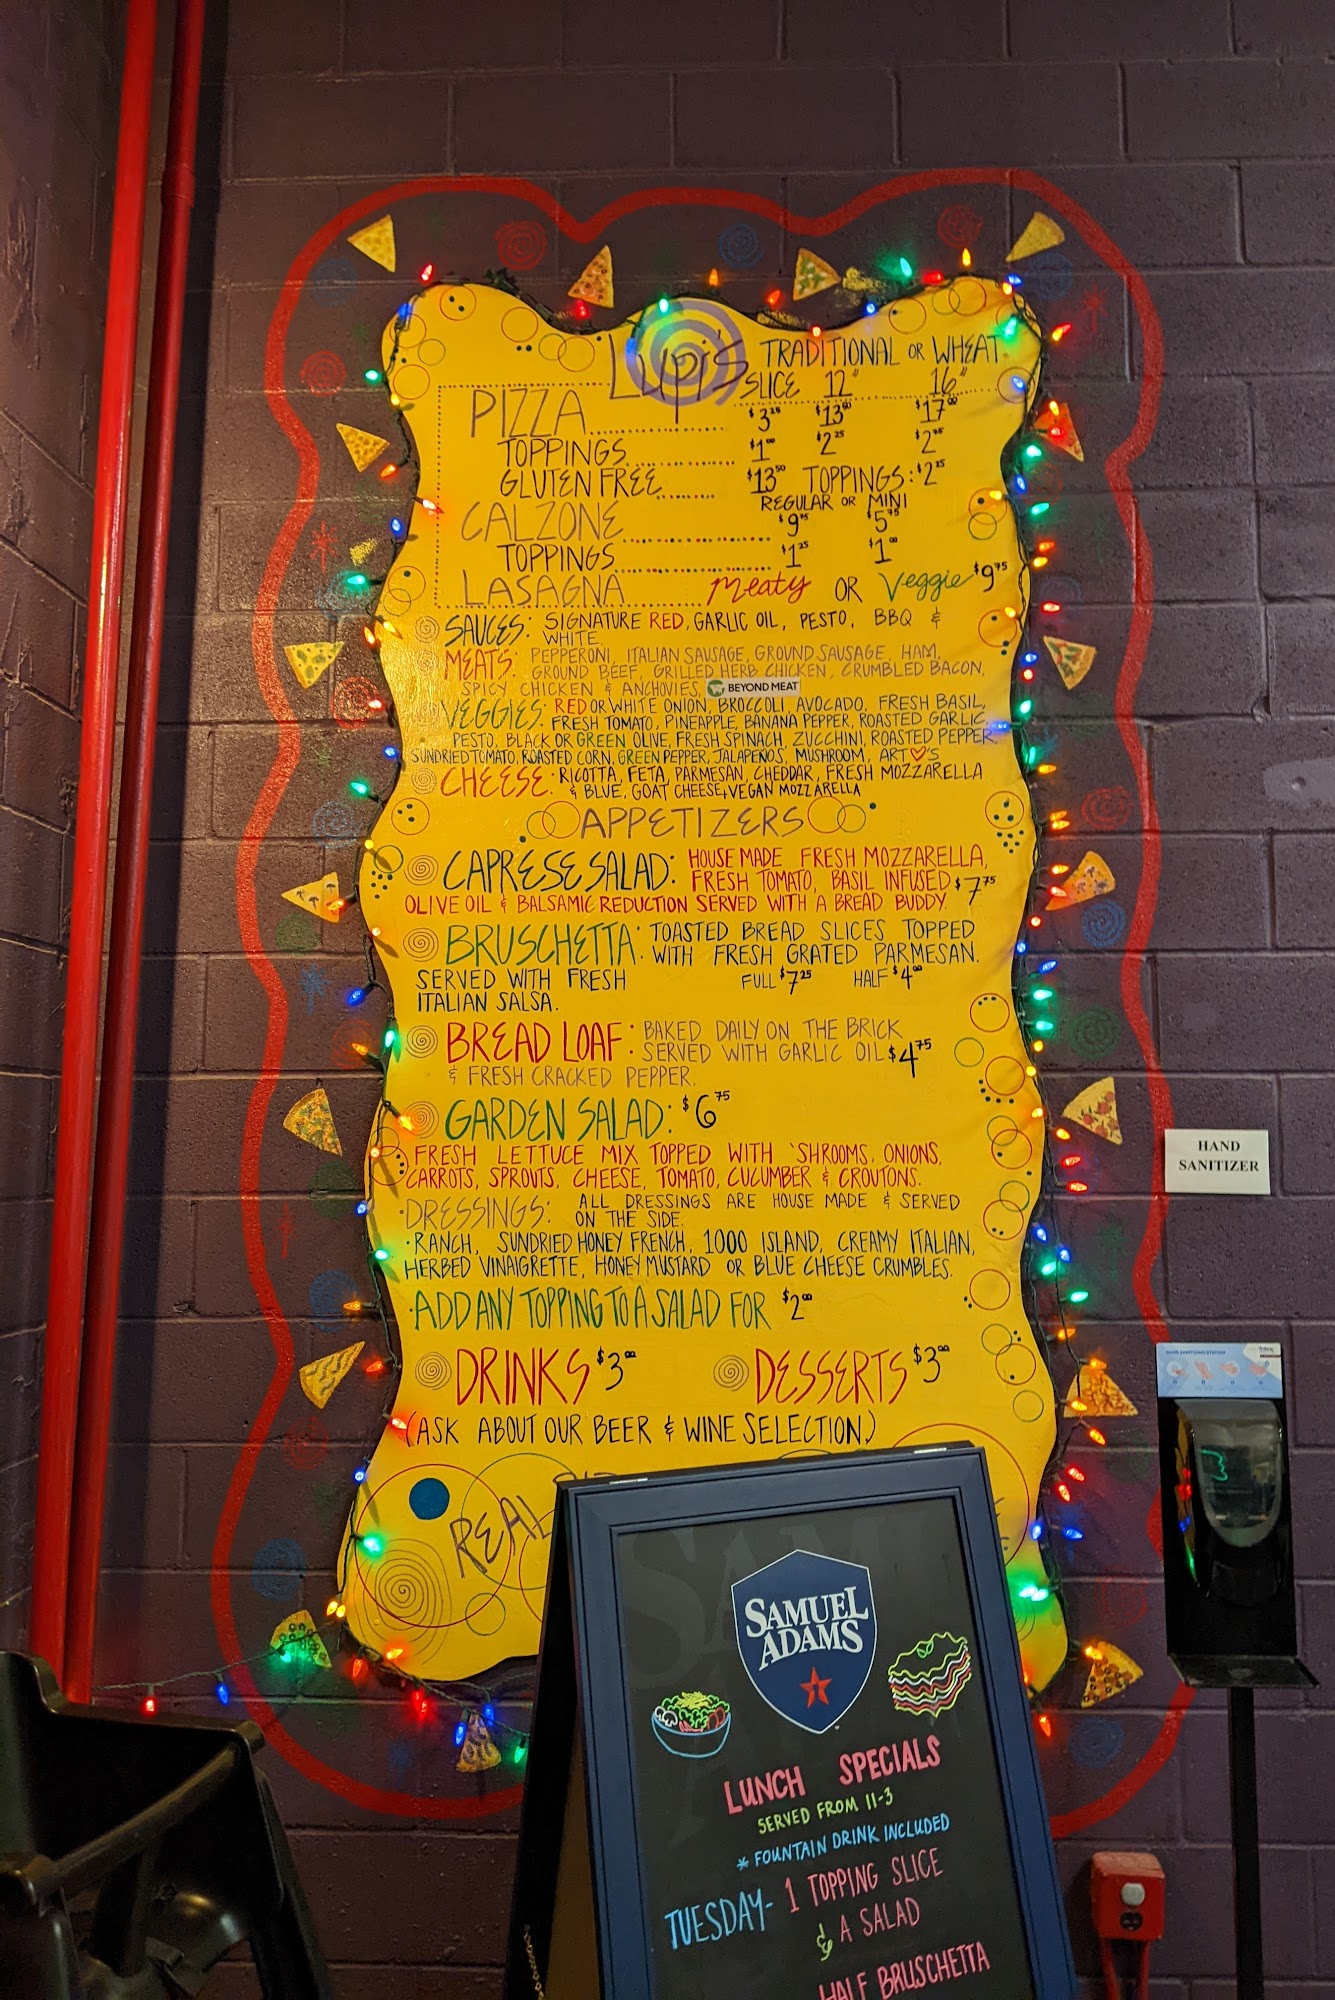 Lupi's TRADITIONAL OR WHEAT
SLICE 12" 16"
PIZZA $3.25 $13.00 $17.00
TOPPINGS $1.00 $2.25 $2.75
GLUTEN FREE $13.50 TOPPINGS: $2.25
REGULAR OR MINI
CALZONE $9.75 $5.75
TOPPINGS $1.25 $1.00
LASAGNA Meaty OR Veggie $9.75
SAUCES: SIGNATURE RED, GARLIC OIL, PESTO, BBQ &
WHITE.
MEATS: PEPPERONI, ITALIAN SAUSAGE, GROUND SAUSAGE, HAM,
GROUND BEEF, GRILLED HERB CHICKEN, CRUMBLED BACON,
SPICY CHICKEN & ANCHOVIES, BEYOND MEAT
VEGGIES: RED OR WHITE ONION, BROCCOLI, AVOCADO, FRESH BASIL,
FRESH TOMATO, PINEAPPLE, BANANA PEPPER, ROASTED GARLIC
PESTO, BLACK OR GREEN OLIVE, FRESH SPINACH, ZUCCHINI, ROASTED PEPPER,
SUNDRIED TOMATO, ROASTED CORN, GREEN PEPPER, JALAPEÑOS, MUSHROOM, ART♡'S
CHEESE: RICOTTA, FETA, PARMESAN, CHEDDAR, FRESH MOZZARELLA
& BLUE, GOAT CHEESE + VEGAN MOZZARELLA
APPETIZERS
CAPRESE SALAD: HOUSE MADE FRESH MOZZARELLA,
FRESH TOMATO, BASIL INFUSED $7.75
OLIVE OIL & BALSAMIC REDUCTION SERVED WITH A BREAD BUDDY.
BRUSCHETTA: TOASTED BREAD SLICES TOPPED
WITH FRESH GRATED PARMESAN.
SERVED WITH FRESH FULL $7.25 HALF $4.00
ITALIAN SALSA.
BREAD LOAF: BAKED DAILY ON THE BRICK
SERVED WITH GARLIC OIL $4.75
& FRESH CRACKED PEPPER.
GARDEN SALAD: $6.75
FRESH LETTUCE MIX TOPPED WITH 'SHROOMS, ONIONS,
CARROTS, SPROUTS, CHEESE, TOMATO, CUCUMBER & CROUTONS.
DRESSINGS: ALL DRESSINGS ARE HOUSE MADE & SERVED
ON THE SIDE.
·RANCH, SUNDRIED HONEY FRENCH, 1000 ISLAND, CREAMY ITALIAN,
HERBED VINAIGRETTE, HONEY MUSTARD OR BLUE CHEESE CRUMBLES.
·ADD ANY TOPPING TO A SALAD FOR $2.00
DRINKS $3.00 DESSERTS $3.00
(ASK ABOUT OUR BEER & WINE SELECTION)
REAL
HAND
SANITIZER
SAMUEL
ADAMS
LUNCH SPECIALS
SERVED FROM 11-3
* FOUNTAIN DRINK INCLUDED
TUESDAY- 1 TOPPING SLICE
& A SALAD
HALF BRUSCHETTA